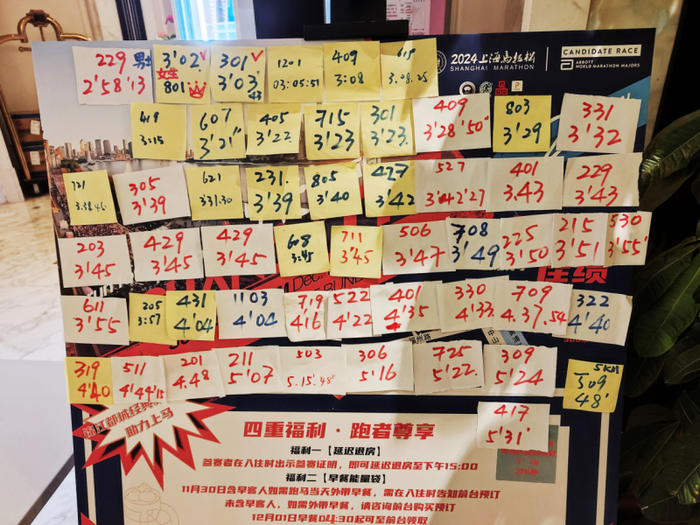 229 男士
2'58'13
3'02 ✓
女生
801
301 ✓
3'03
43
1201
03:05:51
409
3:08
619
3.08.28
2024上海马拉松
SHANGHAI MARATHON
CANDIDATE RACE
ABBOTT
WORLD MARATHON MAJORS
419
3:15
607
3'21"
405
3'22
715
3'23
301
3'23.
409
3'28'50"
803
3'29
331
3'32
721
3.38.46
305
3'39
621
3:31.30
231.
3'39
805
3'40
427
3'42
527
3'42'27
401
3.43
229
3'43
203
3'45
429
3'45
429
3'45
608
3:45
711
3'45
506
3'47
708
3'49
225
3'50
215
3'51
530
3'55'
611
3'55
205
3:57
431
4'04
1103
4'04
719
4'16
522
4'22
401
4'35
330
4'37
709
4.37.54
322
4'40
319
4'40
511
4'44'15
201
4.48
211
5'07
503
5.15.48"
306
5'16
725
5'22.
309
5'24
5KM
509
48'
417
5'31'
助力上马
四重福利·跑者尊享
福利一【延迟退房】
参赛者在入住时出示参赛证明，即可延迟退房至下午15:00
福利二【早餐能量袋】
11月30日含早客人如需跑马当天外带早餐，需在入住时告知前台预订
未含早客人，如需外带早餐，请咨询前台购买预订
12月01日早餐04:30起可至前台领取